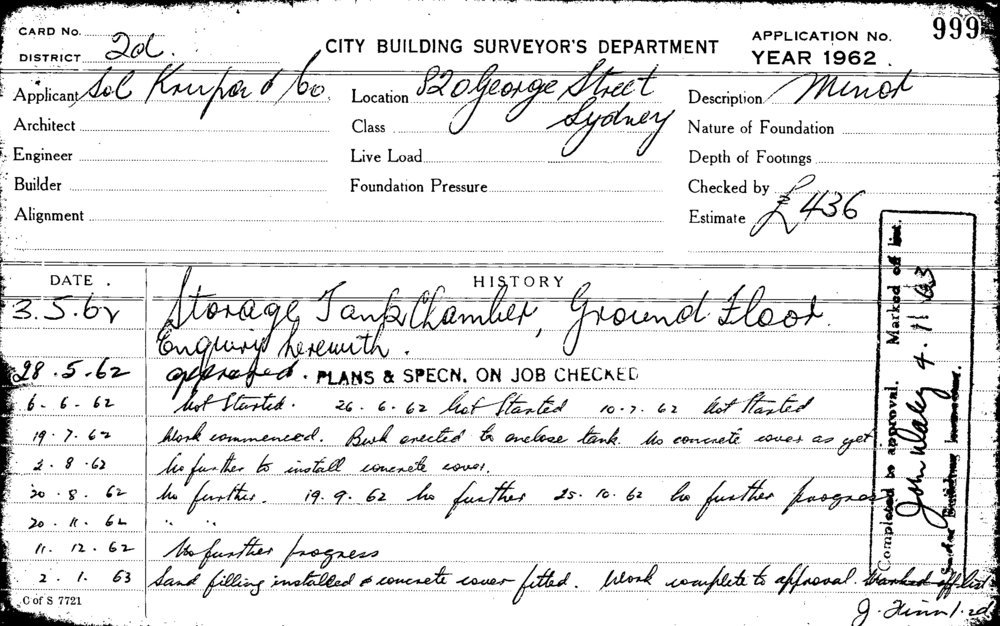 CARD No.
DISTRICT 2d.
CITY BUILDING SURVEYOR'S DEPARTMENT
APPLICATION No. 999
YEAR 1962.
Applicant Sol & Co. Location 820 George Street Description Minor
Sydney
Architect Class Nature of Foundation
Engineer Live Load Depth of Footings
Builder Foundation Pressure Checked by
Alignment Estimate £436
DATE. HISTORY
3.5.62 Storage Tank Chamber, Ground Floor.
Enquiry herewith.
28.5.62 approved. PLANS & SPECN. ON JOB CHECKED
6.6.62 Not Started. 26.6.62 Not Started 10.7.62 Not Started
19.7.62 Work commenced. Brick erected to enclose tank. No concrete cover as yet
2.8.62 No further to install concrete cover.
20.8.62 No further. 19.9.62 No further 25.10.62 No further progress
20.11.62 " "
11.12.62 No further progress
2.1.63 Sand filling installed & concrete cover fitted. Work complete to approval. Marked off list
C of S 7721
J.
Completed to approval. Marked off list.
John 4.11.63